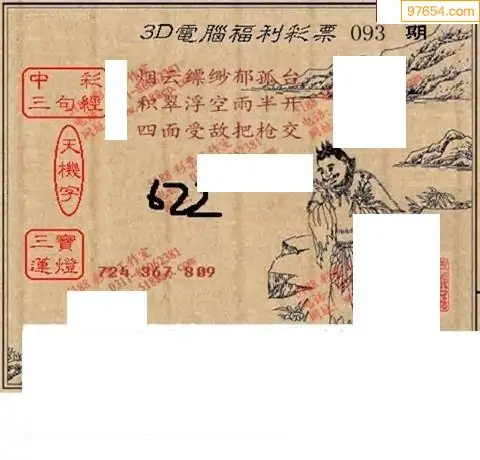 97654.com
3D電腦福利彩票 093 期
中彩
三句經
烟云縹缈郁孤台
积翠浮空雨半开
四面受敌把枪交
天機字
622
三寶
蓮燈
724 367 809